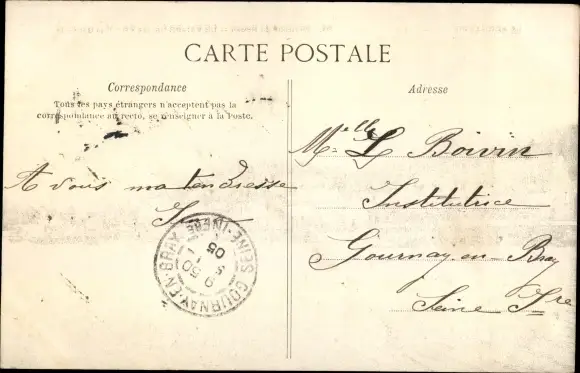 CARTE POSTALE
Correspondance
Tous les pays étrangers n'acceptent pas la
correspondance au recto, se renseigner à la Poste.
A vous ma tendresse
Adresse
Melle L Boivin
Institutrice
Gournay-en-Bray
Seine Ire
GOURNAY-EN-BRAY
SEINE-INFRE
05